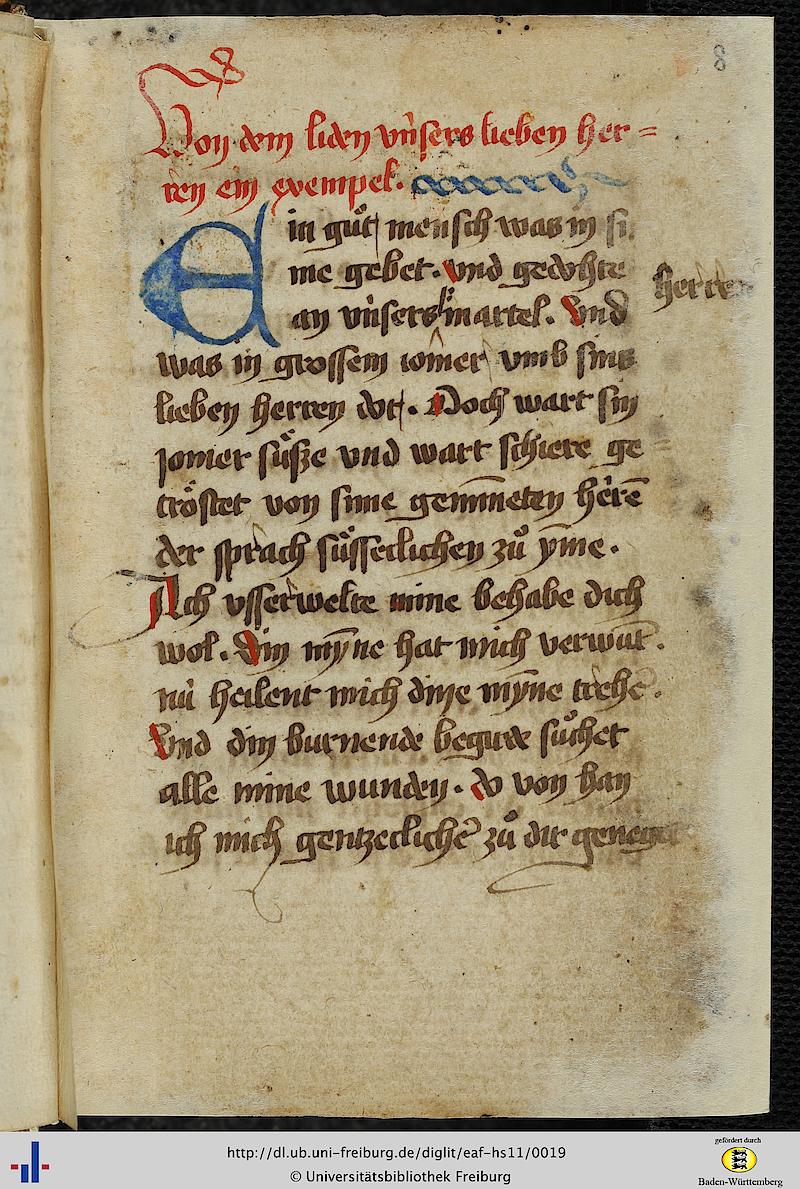 8
Von dem liden vnsers lieben her=
ren ein exempel.
Ein guͦt mensch was in si
me gebet. vnd gedohte
an vnsers martel. Vnd
herren
was in grossem iomer vmb sins
lieben herren dot. Doch wart sin
jomer suͤsze vnd wart schiere ge=
troͤstet von sime geminneten herē
der sprach suͤsseclichen zuͦ yme.
Ich vsserwelte mine behabe dich
wol. Din mȳne hat mich verwūt.
nu heilent mich dine mȳne trehē.
Vnd din burnende begirde suͦchet
alle mine wunden. do von han
ich mich gentzeclichē zuͦ dir geneget
http://dl.ub.uni-freiburg.de/diglit/eaf-hs11/0019
© Universitätsbibliothek Freiburg
gefördert durch
Baden-Württemberg